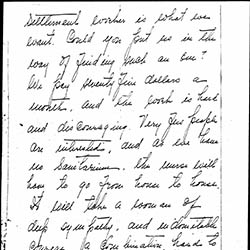 settlement worker is what we
want. Could you put us in the
way of finding such an one?
We pay seventy five dollars a
month, and the work is hard
and discouraging. Very few people
are interested, and as we have
no Sanitarium, the nurse will
have to go from house to house.
It will take a woman of
deep sympathy, and indomitable
courage, a combination, hard to